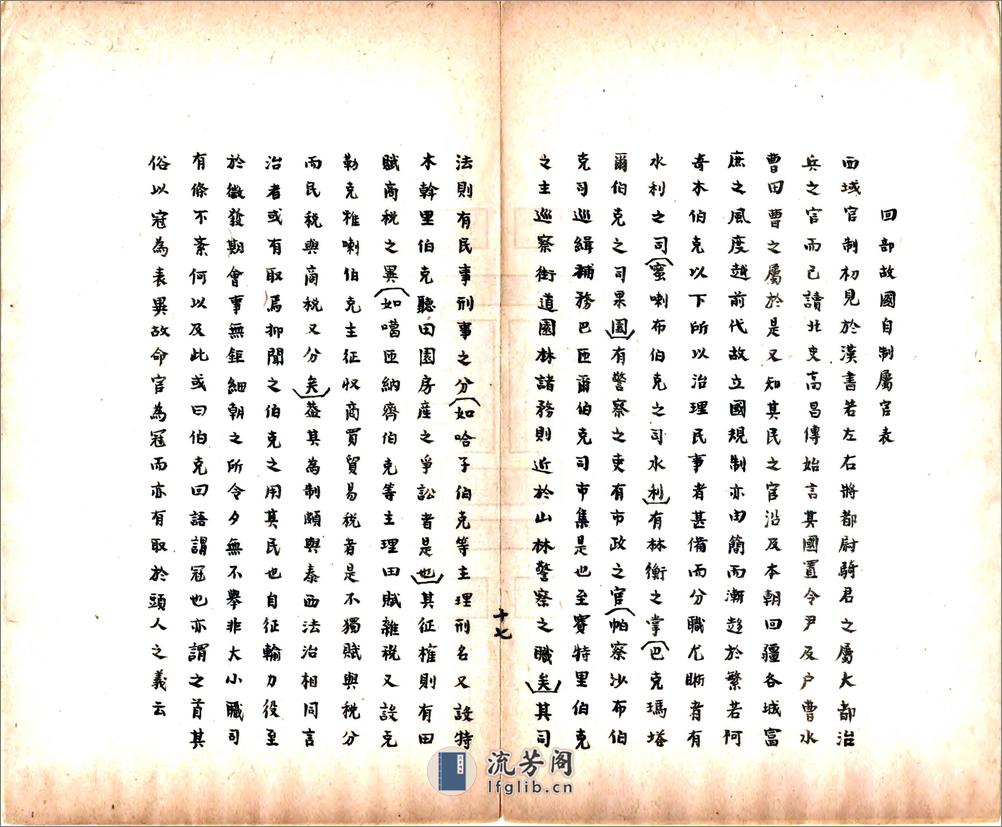 回部故國自制屬官表
西域官制初見於漢書若左右將都尉騎君之屬大都治
兵之官而已讀北史高昌傳始言其國置令尹及户曹水
曹田曹之屬於是又知其民之官沿及本朝回疆各城富
庶之風度越前代故立國規制亦由簡而漸趨於繁若阿
奇木伯克以下所以治理民事者甚備而分職尤晰者有
水利之司(密喇布伯克之司水利)有林衡之掌(巴克瑪塔
爾伯克之司果園)有警察之吏有市政之官(帕察沙布伯
克司巡緝補務巴匝爾伯克司市集是也至賽特里伯克
之主巡察街道園林諸務則近於山林警察之職矣)其司
法則有民事刑事之分(如哈子伯克等主理刑名又設特
木斡里伯克聽田園房產之爭訟者是也)其征榷則有田
賦商税之異(如噶匝納齊伯克等主理田賦雜税又設克
勒克雅喇伯克主征收商賈貿易税者是不獨賦與税分
而民税與商税又分矣)葢其為制頗與泰西法治相同言
治者或有取焉抑聞之伯克之用其民也自征輸力役至
於徵發期會事無鉅細朝之所令夕無不舉非大小職司
有條不紊何以及此或曰伯克回語謂冠也亦謂之首其
俗以冠為表異故命官為冠而亦有取於頭人之義云
十七
流芳阁
lfglib.cn